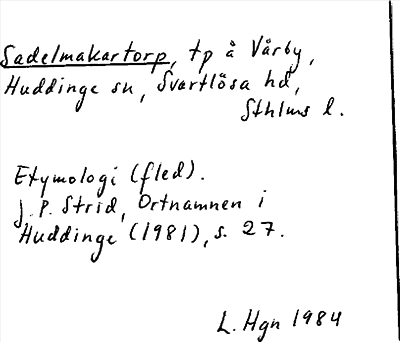 Sadelmakartorp, tp å Vårby,
Huddinge sn, Svartlösa hd,
Sthlms l.
Etymologi (fled).
J. P. Strid, Ortnamnen i
Huddinge (1981), s. 27.
L. Hgn 1984